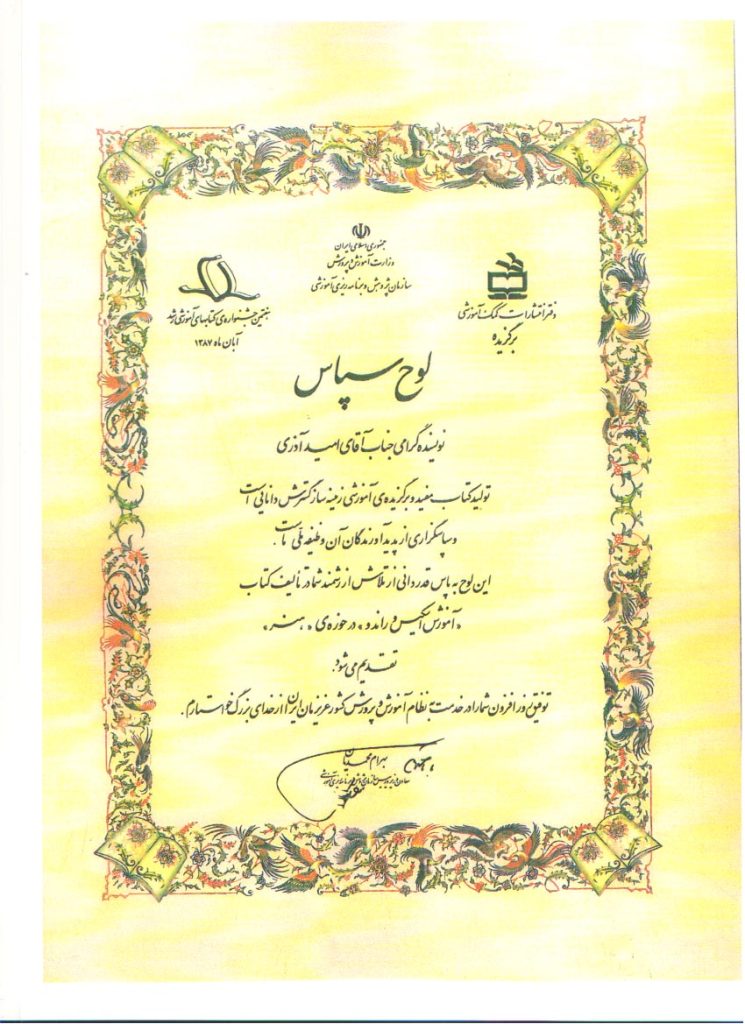 جمهوری اسلامی ایران
وزارت آموزش و پرورش
سازمان پژوهش و برنامه ریزی آموزشی
دفتر انتشارات کمک آموزشی
برگزیده
هفتمین جشنواره‌ی کتابهای آموزشی رشد
آبان ماه ۱۳۸۷
لوح سپاس
نویسنده گرامی جناب آقای امید آذری
تولید کتاب مفید و برگزیده‌ی آموزشی زمینه ساز گسترش دانایی است
و سپاسگزاری از پدیدآورندگان آن وظیفه ملی ماست.
این لوح به پاس قدردانی از تلاش ارزشمند شما در تألیف کتاب
«آموزش ایکس و راندو» در حوزه‌ی «هنر»
تقدیم می شود.
توفیق روز افزون شما را در خدمت به نظام آموزش و پرورش کشور عزیزمان ایران از خدای بزرگ خواستارم.
بهرام محمدیان